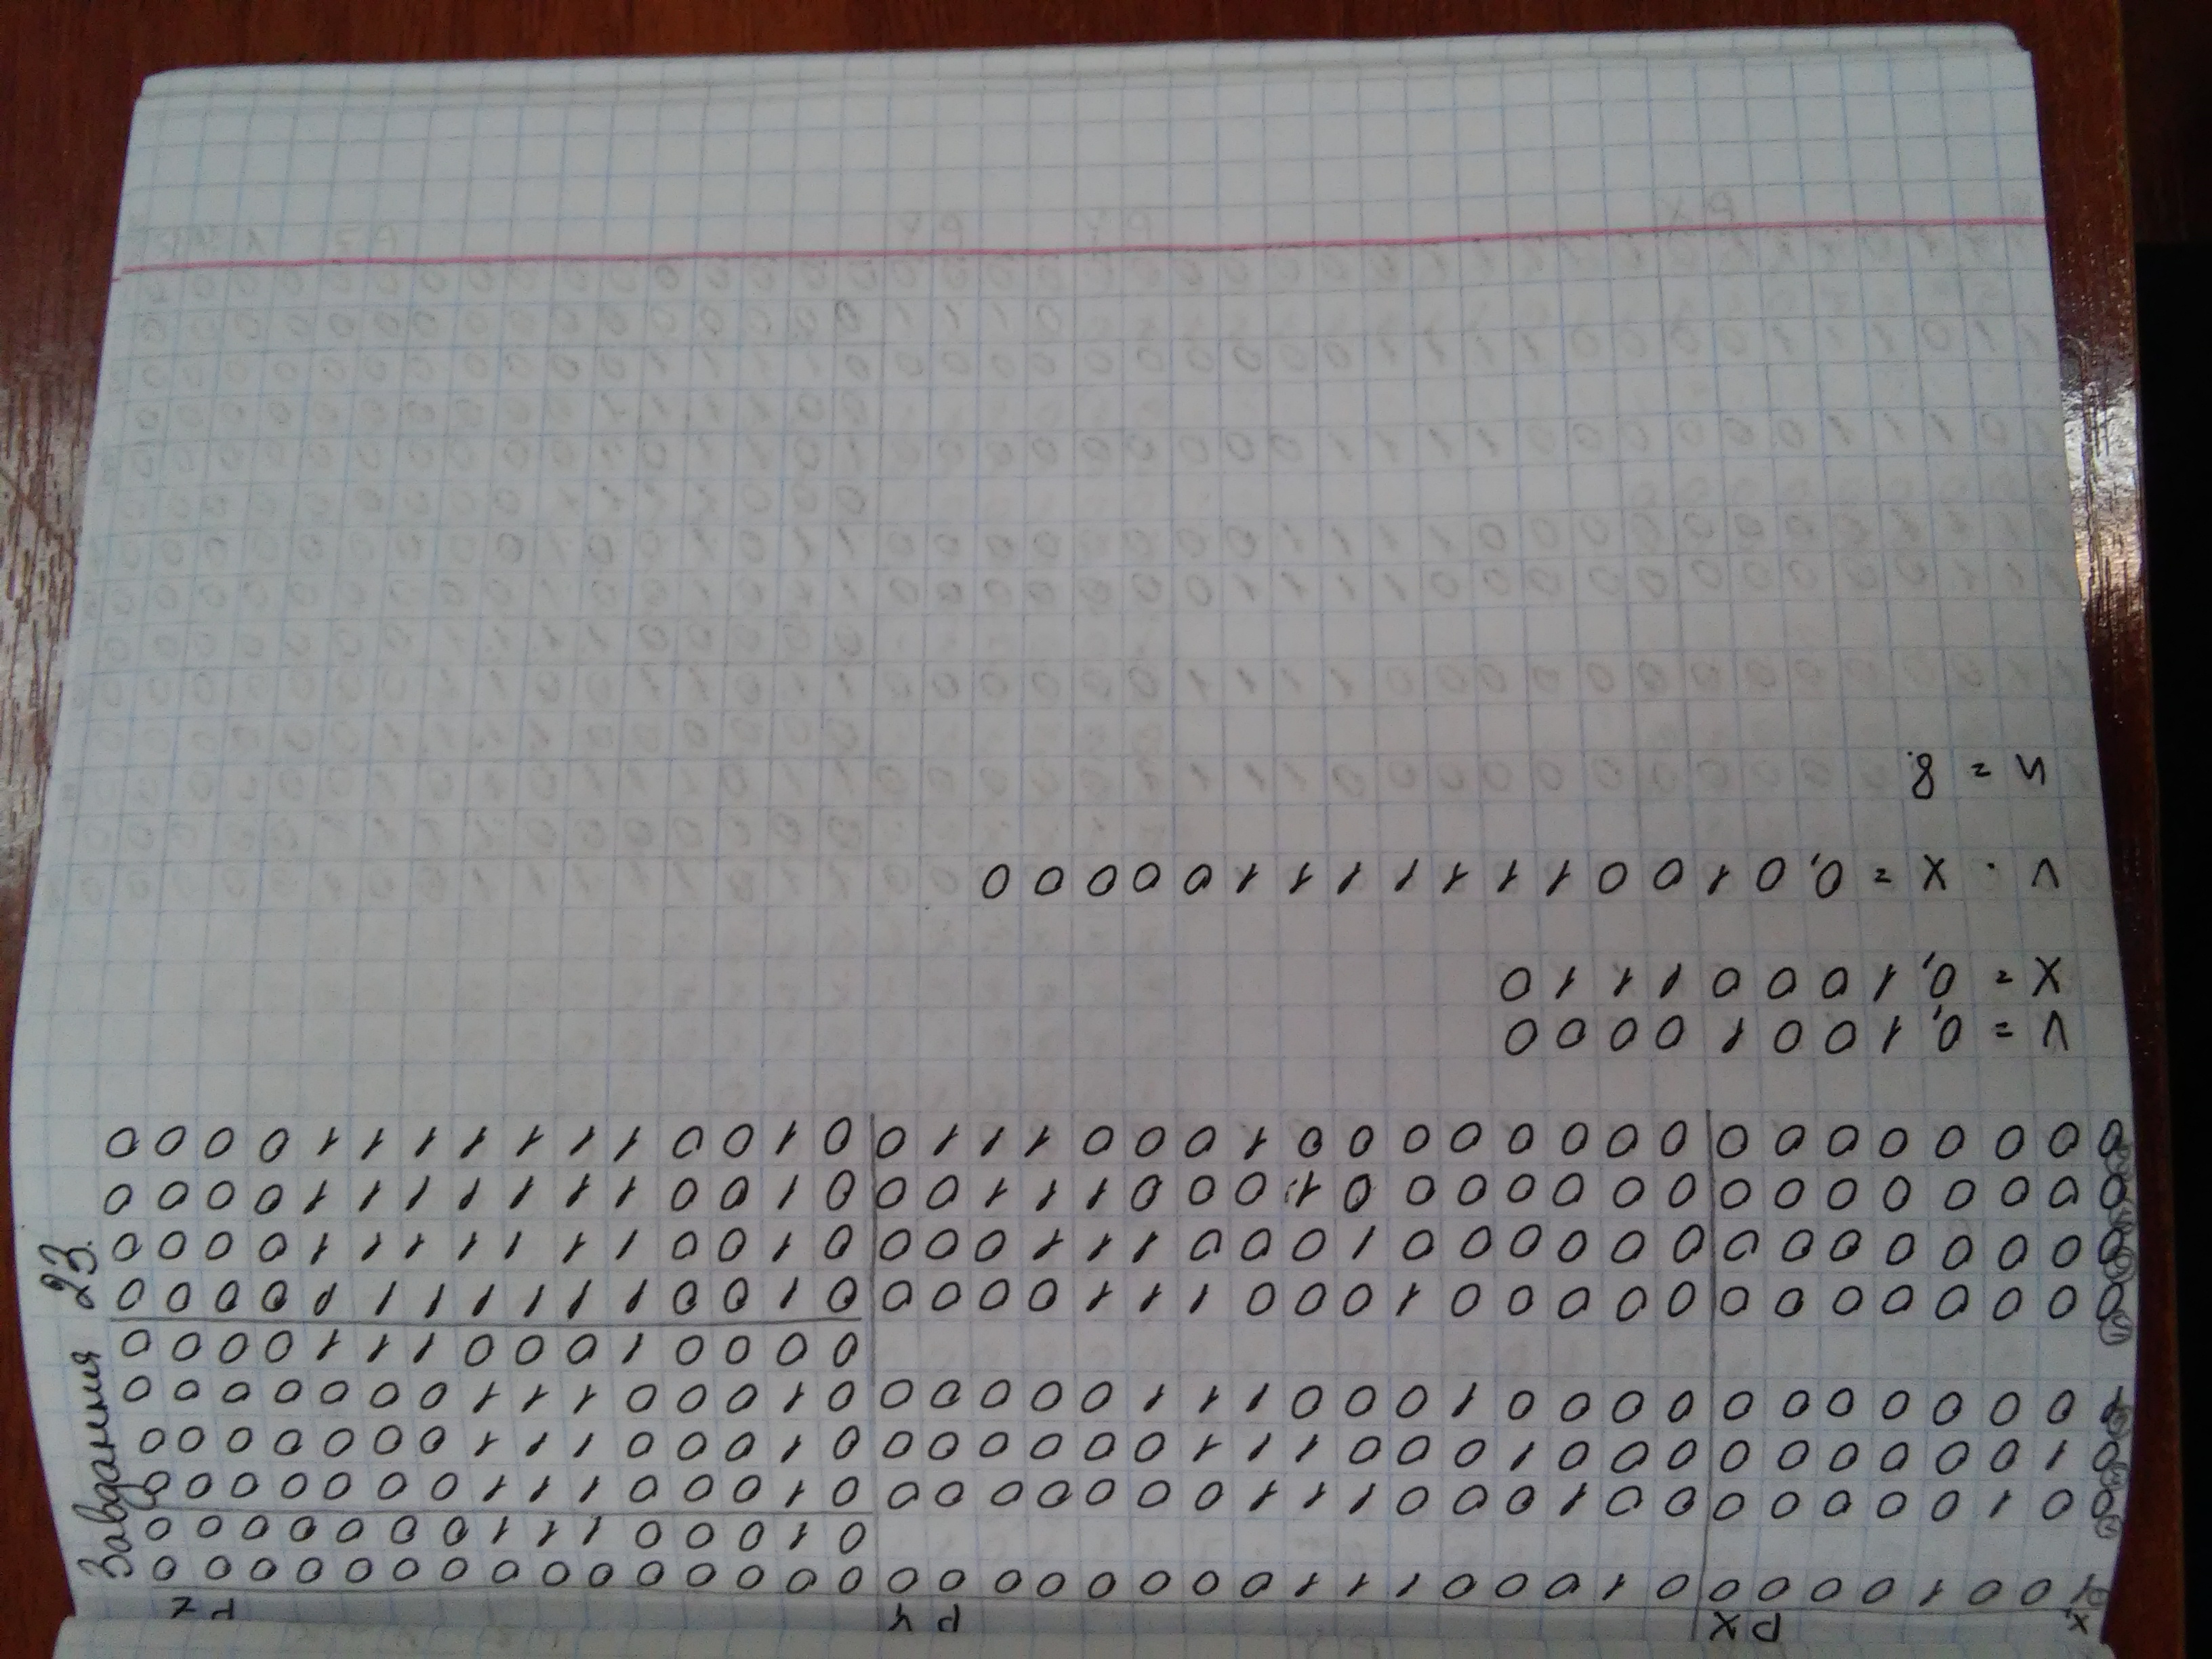 X₁ PX PY PZ
1 0 0 1 0 0 0 0 0 1 0 0 0 1 1 1 0 0 0 0 0 0 0 0 0 0 0 0 0 0 0 0 0 0 0 0 0 0 0
0 1 0 0 0 1 1 1 0 0 0 0 0 0 0
0 0 1 0 0 0 0 0 0 0 1 0 0 0 1 1 1 0 0 0 0 0 0 0 0 1 0 0 0 1 1 1 0 0 0 0 0 0 0
0 1 0 0 0 0 0 0 0 0 0 1 0 0 0 1 1 1 0 0 0 0 0 0 0 1 0 0 0 1 1 1 0 0 0 0 0 0 0
1 0 0 0 0 0 0 0 0 0 0 0 1 0 0 0 1 1 1 0 0 0 0 0 0 1 0 0 0 1 1 1 0 0 0 0 0 0 0
0 0 0 0 1 0 0 0 1 1 1 0 0 0 0
0 0 0 0 0 0 0 0 0 0 0 0 0 1 0 0 0 1 1 1 0 0 0 0 0 1 0 0 1 1 1 1 1 1 1 0 0 0 0
0 0 0 0 0 0 0 0 0 0 0 0 0 0 1 0 0 0 1 1 1 0 0 0 0 1 0 0 1 1 1 1 1 1 1 0 0 0 0
0 0 0 0 0 0 0 0 0 0 0 0 0 0 0 1 0 0 0 1 1 1 0 0 0 1 0 0 1 1 1 1 1 1 1 0 0 0 0
0 0 0 0 0 0 0 0 0 0 0 0 0 0 0 0 1 0 0 0 1 1 1 0 0 1 0 0 1 1 1 1 1 1 1 0 0 0 0
Завдання 23.
V = 0,1 0 0 1 0 0 0 0
X = 0,1 0 0 0 1 1 1 0
V . X = 0,0 1 0 0 1 1 1 1 1 1 1 0 0 0 0 0
n = 8.